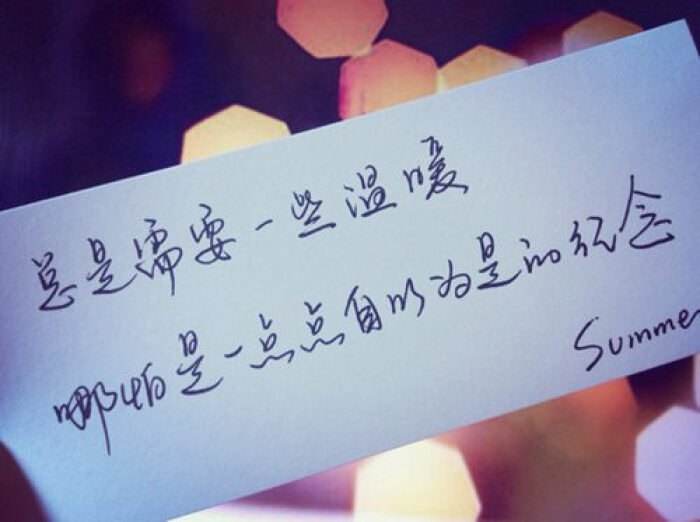 总是需要一些温暖
哪怕是一点点自以为是的纪念
Summer